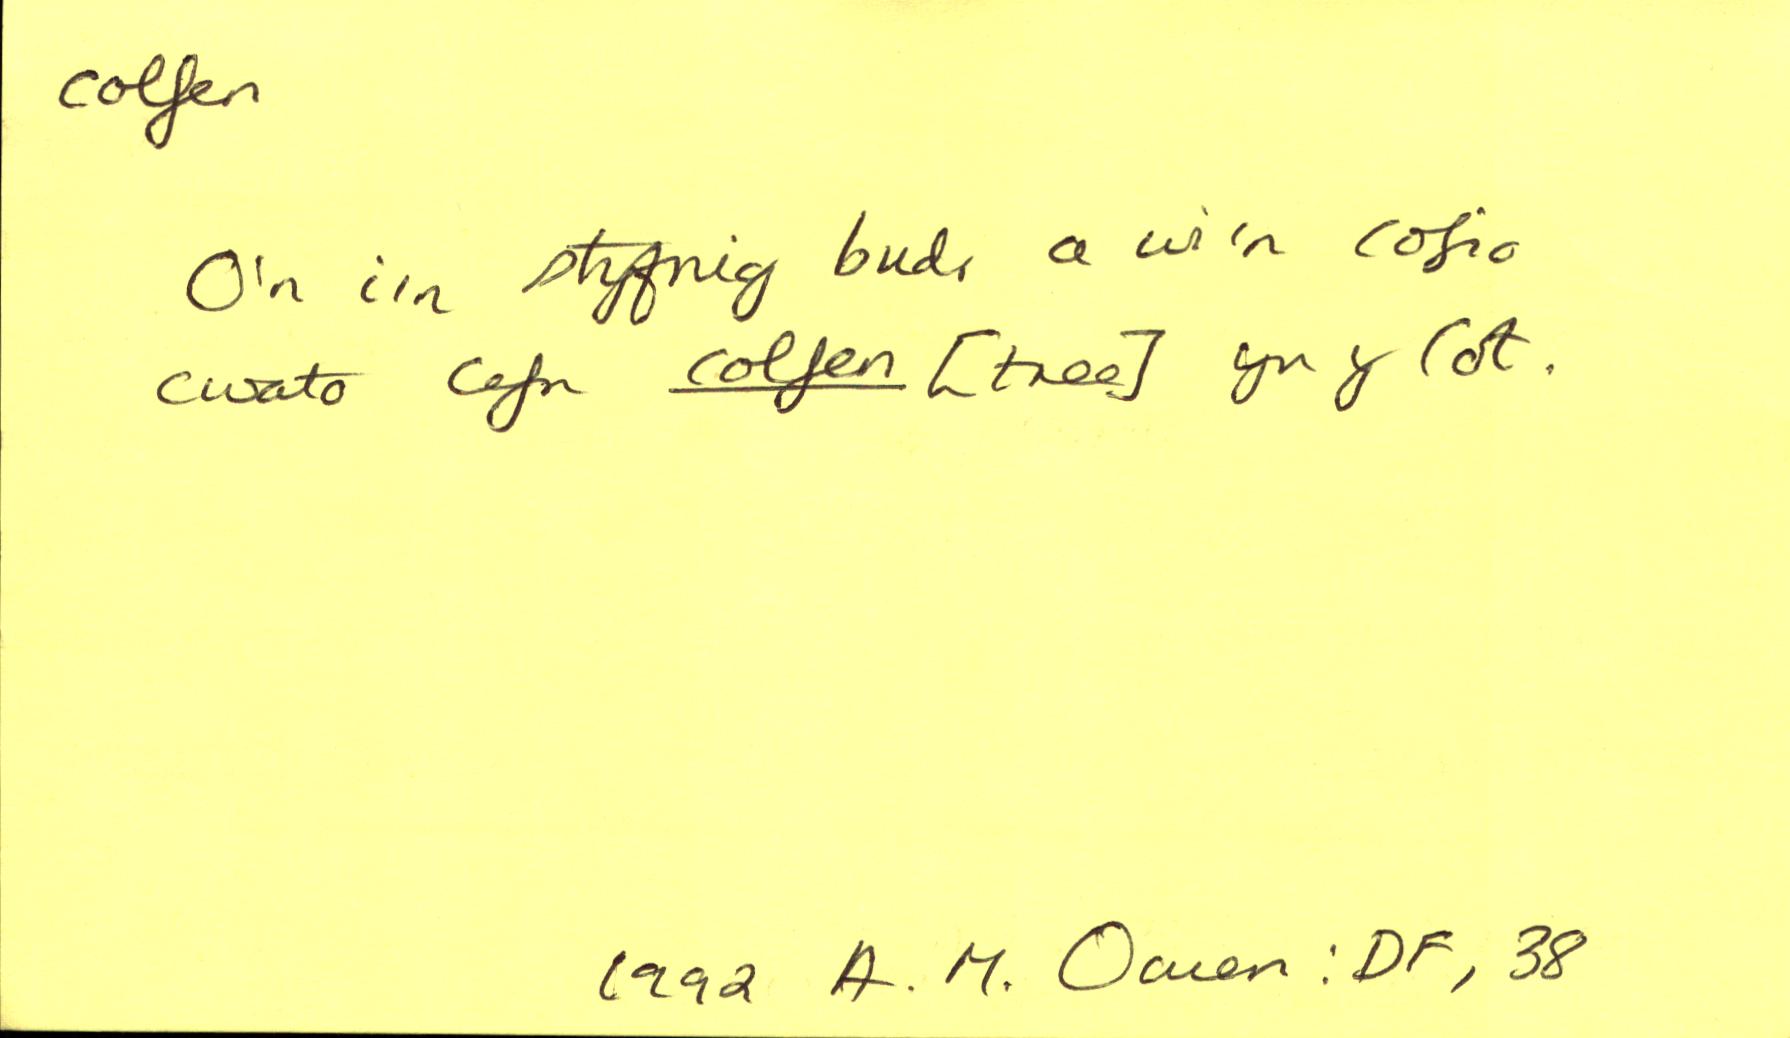 colfen
O'n i'n styfnig bud, a wi'n cofio
cwato cefn colfen [tree] yn y Cot.
1992 A. M. Owen: DF, 38